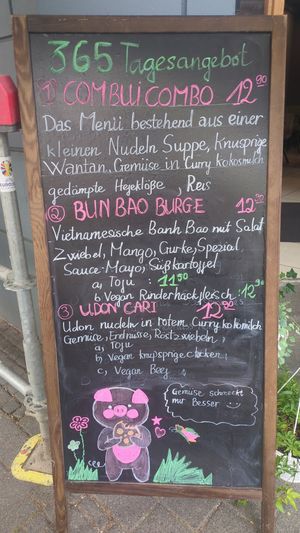 365 Tagesangebot
① COMBUI COMBO 12 90
Das Menü bestehend aus einer
kleinen Nudeln Suppe, Knusprige
Wantan, Gemüse in Curry kokosmilch
gedämpte Hefeklöße, Reis
② BUN BAO BURGE 12 90
Vietnamesische Banh Bao mit Salat
Zwiebel, Mango, Gurke, Spezial
Sauce-Mayo, Süßkartoffel
a, Tofu : 11 90
b Vegan Rinderhackfleisch : 12 90
③ UDON CARI 12 90
Udon nudeln in rotem Curry kokomilch
Gemüse, Erdnüsse, Röstzwiebeln
a, Tofu
b, Vegan knusprige chicken
c, Vegan Beef
Gemüse schmeckt
mir Besser